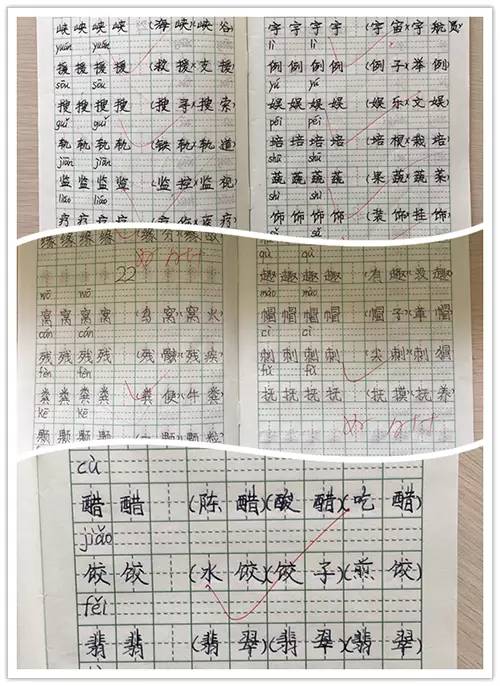 峡 峡 峡 峡 (海峡)(峡谷)
yuán yuán
援 援 援 援 (救援)(支援)
sōu sōu
搜 搜 搜 搜 (搜寻)(搜索)
guǐ guǐ
轨 轨 轨 轨 (铁轨)(轨道)
jiān jiān
监 监 监 监 (监控)(监视)
liáo liáo
疗 疗 疗 疗
宇 宇 宇 宇 (宇宙)(宇航员)
lì lì
例 例 例 例 (例子)(举例)
yú yú
娱 娱 娱 娱 (娱乐)(文娱)
péi péi
培 培 培 培 (培根)(栽培)
shū shū
蔬 蔬 蔬 蔬 (果蔬)(蔬菜)
shì shì
饰 饰 饰 饰 (装饰)(挂饰)
缘 缘 缘 缘
22
wō wō
窝 窝 窝 窝
cán cán
残 残 残 残 (残骸)(残疾)
fèn fèn
粪 粪 粪 粪 (粪便)(牛粪)
kē kē
颗 颗 颗 颗
qù qù
趣 趣 趣 趣 (有趣)(没趣)
mào mào
帽 帽 帽 帽 (帽子)(草帽)
cì cì
刺 刺 刺 刺 (尖刺)(刺猬)
fǔ fǔ
抚 抚 抚 抚 (抚摸)(抚养)
cù
醋 醋 (陈醋)(酸醋)(吃醋)
jiǎo
饺 饺 (水饺)(饺子)(煎饺)
fěi
翡 翡 (翡翠)(翡翠)(翡翠)